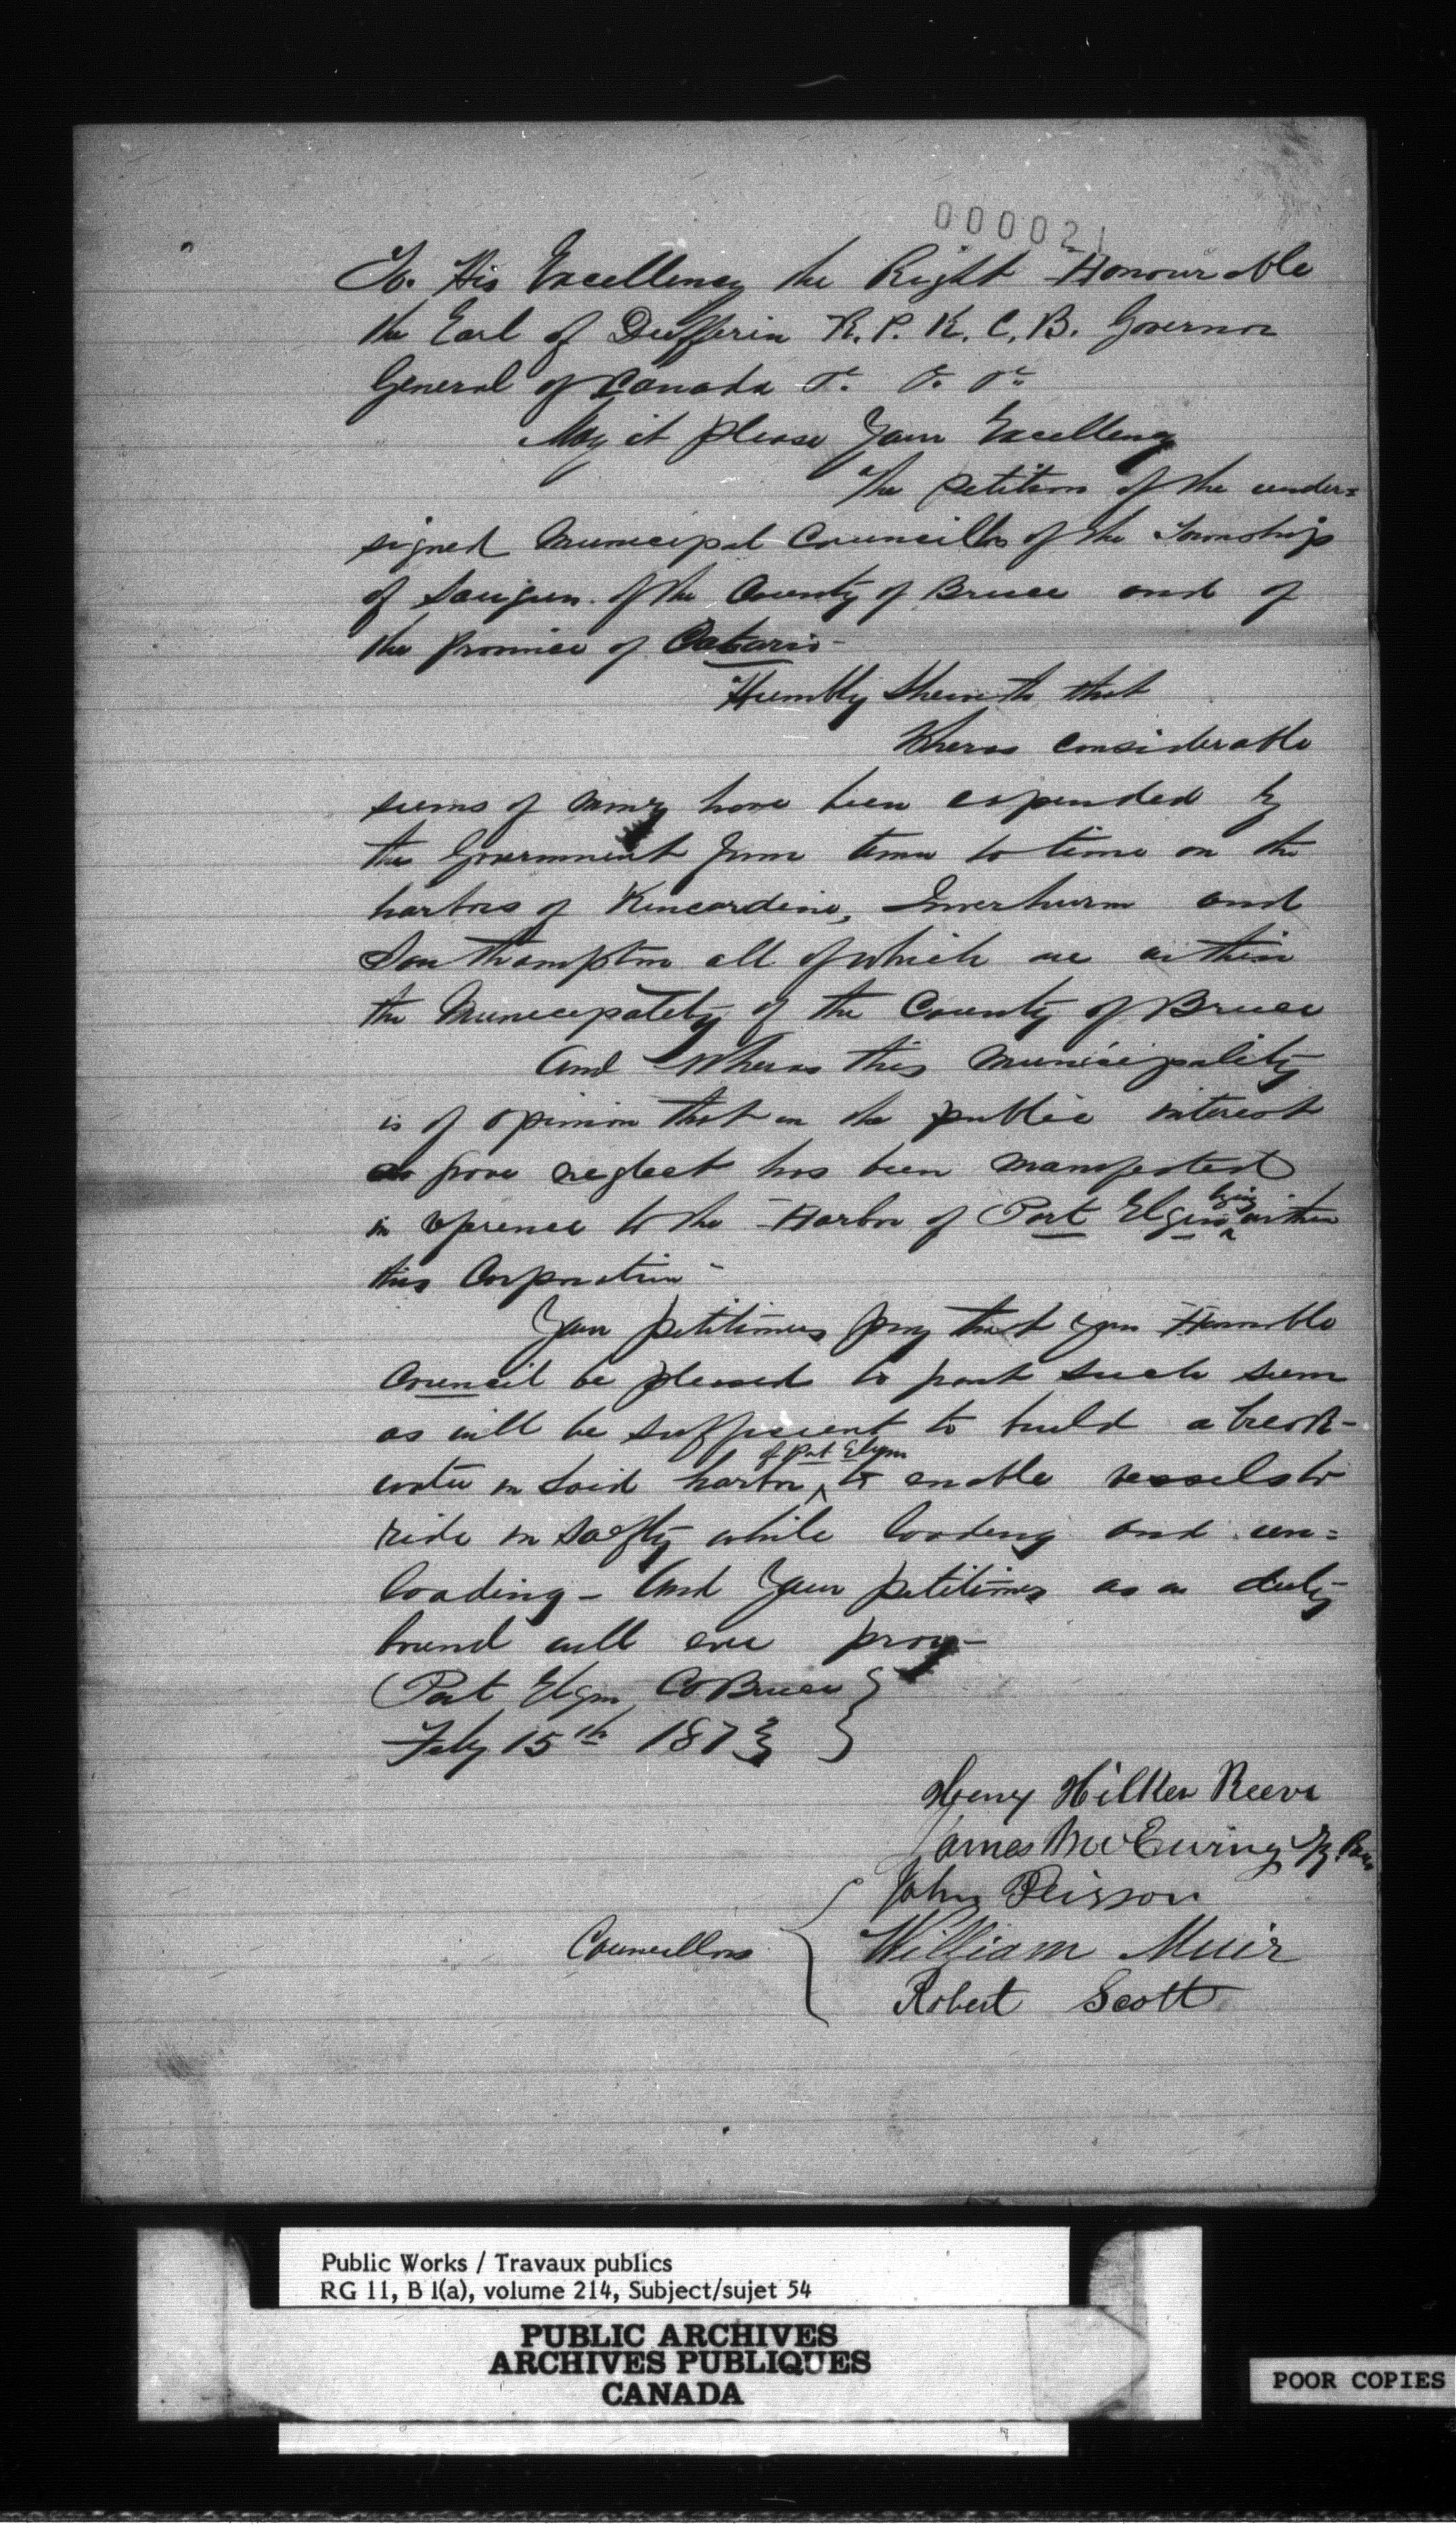 000021
To. His Excellency the Right Honourable
the Earl of Dufferin K. P. K. C. B. Governor
General of Canada
May it please Your Excellency
The petition of the under=
signed Municipal Councillors of the Township
of Saugeen of the County of Bruce and of
the Province of Ontario -
Humbly Sheweth that
Wheras considerable
sums of money have been expended by
the Government from time to time on the
harbors of Kincardine, Inverhuron and
Southampton all of which are within
the Municipality of the County of Bruce
And Wheras this Municipality
is of opinion that in the public interest
neglect has been manifested
in refrence to the Harbor of Port Elgin lying within
this Corporation -
Your petitioners pray that your Honorable
Council be pleased to grant such sum
as will be sufficient to build a break-
water in said harbor of Port Elgin to enable vessels to
ride in safty while loading and un=
loading - And Your petitioners as in duty
bound will ever pray -
Port Elgin Co Bruce
Feby 15th 1873
Henry Hilker Reeve
James McEwing
John
Councillors William Muir
Robert Scott
Public Works / Travaux publics
RG 11, B 1(a), volume 214, Subject/sujet 54
PUBLIC ARCHIVES
ARCHIVES PUBLIQUES
CANADA
POOR COPIES